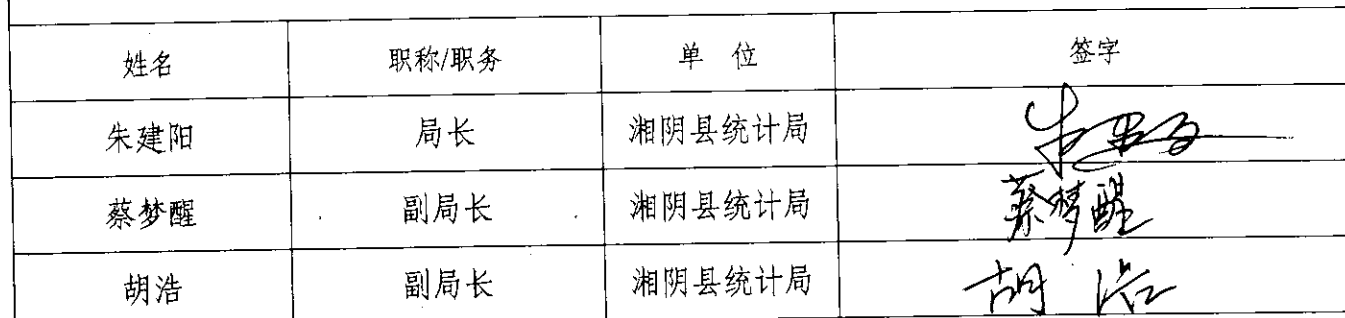 姓名 职称/职务 单 位 签字
朱建阳 局长 湘阴县统计局 朱建阳
蔡梦醒 副局长 湘阴县统计局 蔡梦醒
胡浩 副局长 湘阴县统计局 胡浩